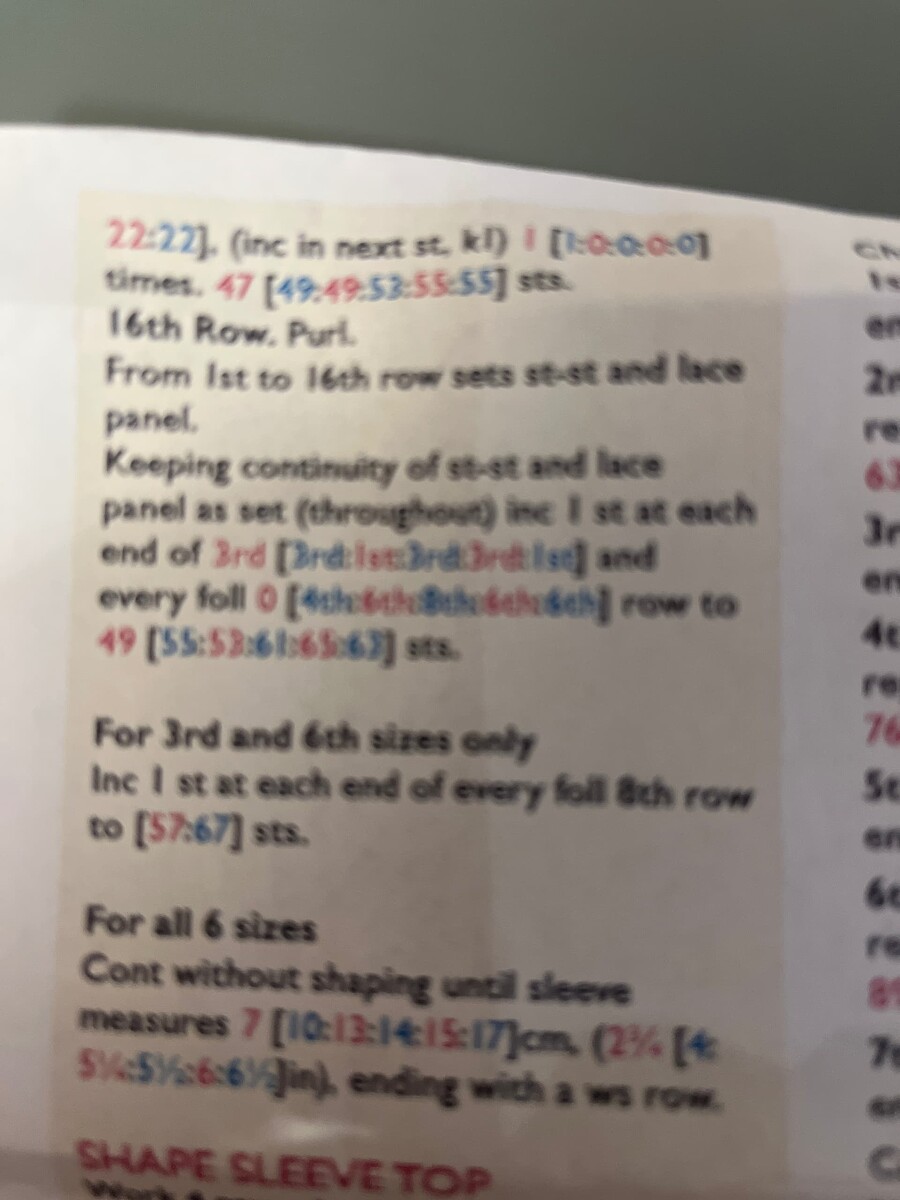 22:22], (inc in next st, k1) 1 [1:0:0:0:0]
times. 47 [49:49:53:55:55] sts.
16th Row. Purl.
From 1st to 16th row sets st-st and lace
panel.
Keeping continuity of st-st and lace
panel as set (throughout) inc 1 st at each
end of 3rd [3rd:1st:3rd:3rd:1st] and
every foll 0 [4th:6th:8th:6th:6th] row to
49 [55:53:61:65:63] sts.
For 3rd and 6th sizes only
Inc 1 st at each end of every foll 8th row
to [57:67] sts.
For all 6 sizes
Cont without shaping until sleeve
measures 7 [10:13:14:15:17]cm, (2¾ [4:
5¼:5½:6:6½]in), ending with a ws row.
SHAPE SLEEVE TOP
Work
2n
re
63
3r
en
4t
re
76
5t
en
6t
re
7t
en